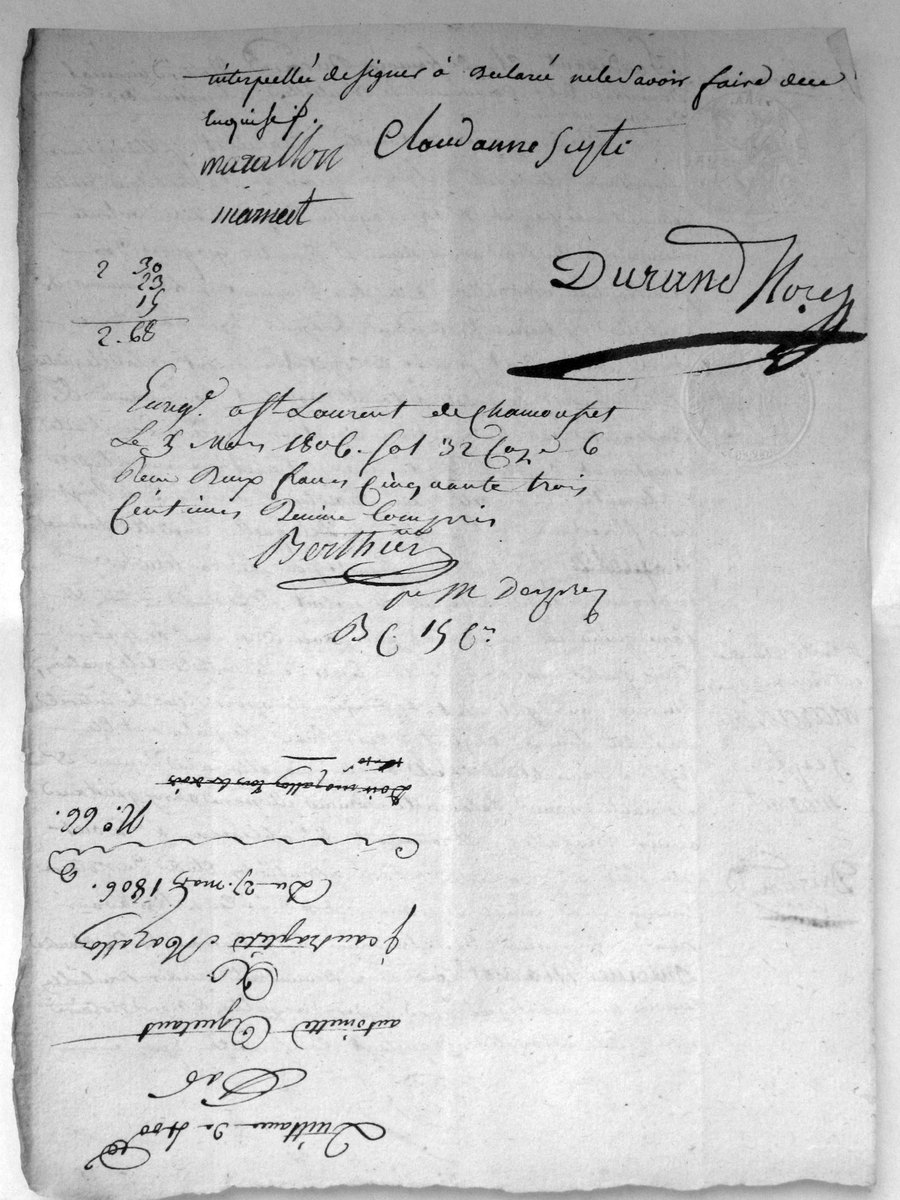 interpellée de signer a declaré ne le Savoir faire de ce
Enquise ./.
mazallon Claudanne Seyte
mamert
Durand Nore
2 30
23
15
2. 68
Enregé. a St. Laurent de Chamousset
Le 3 Mars 1806. fol 32 Case 6
Recu Deux francs Cinquante trois
Centimes Decime Compris
Berthier
15
Quittance de 400
Par
antoinette Aguetant
A
Jean Mazallon
Du 27. mars 1806.
No. 66.